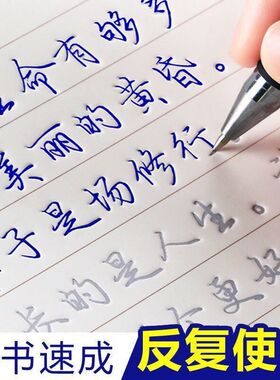 命有够多
美丽的黄昏。
子是场修行
长的是人生。
更好
书速成 反复使